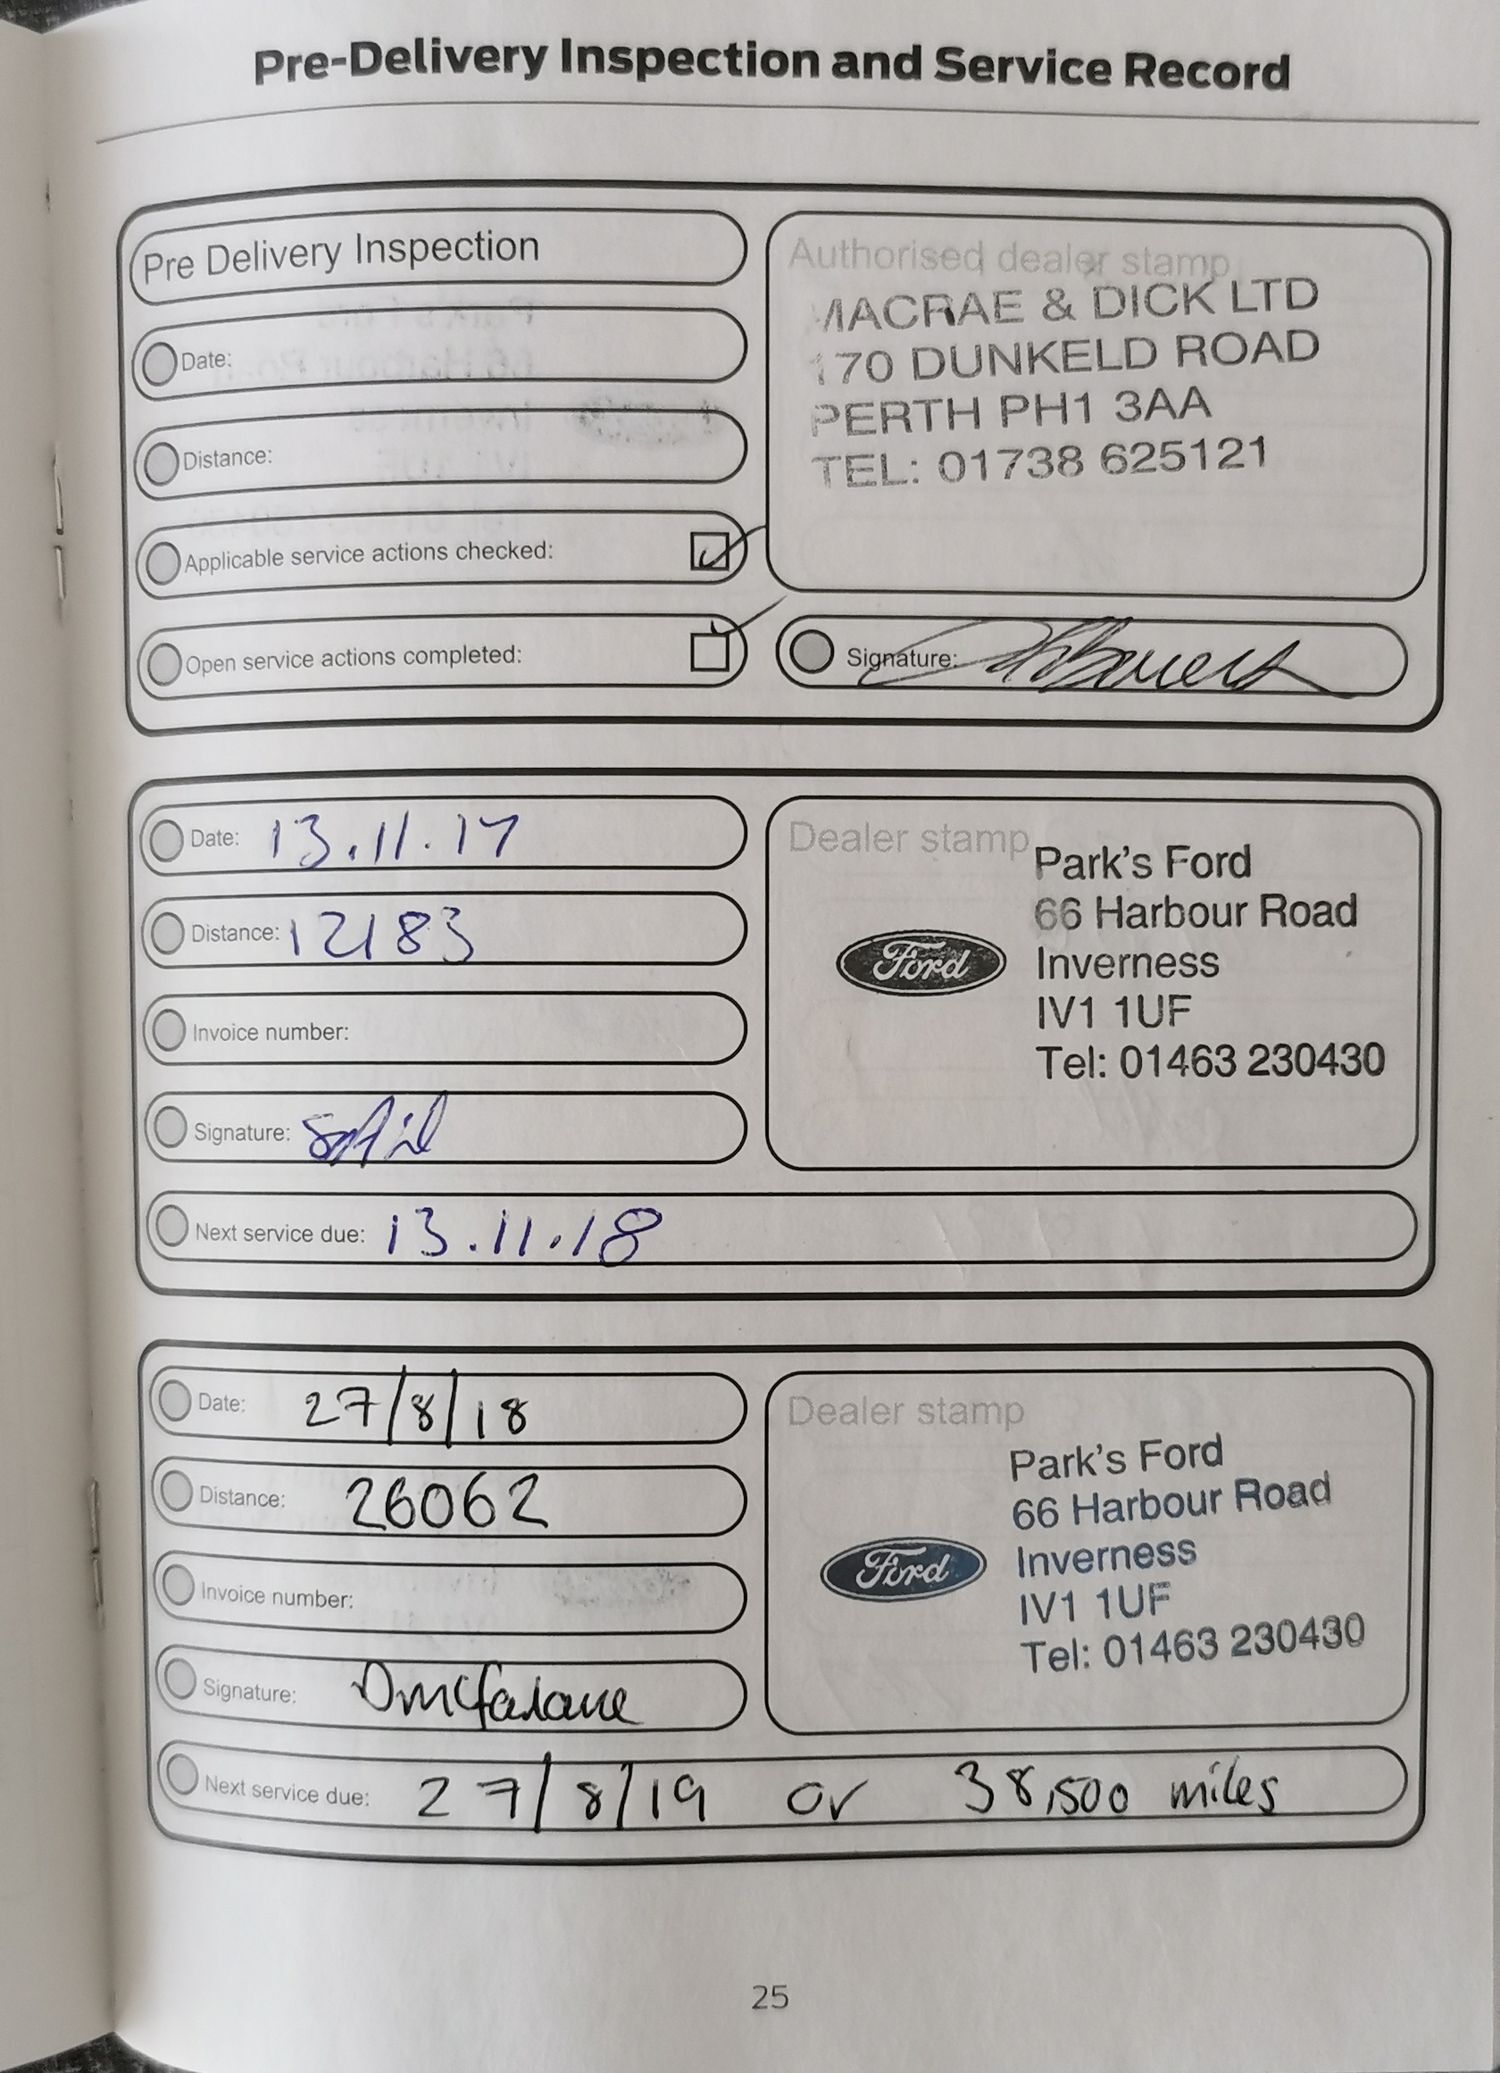 Pre-Delivery Inspection and Service Record
Pre Delivery Inspection
Date:
Distance:
Applicable service actions checked:
Open service actions completed:
Authorised dealer stamp
MACRAE & DICK LTD
170 DUNKELD ROAD
PERTH PH1 3AA
TEL: 01738 625121
Signature:
Date: 13.11.17
Distance: 12183
Invoice number:
Signature:
Dealer stamp
Ford
Park's Ford
66 Harbour Road
Inverness
IV1 1UF
Tel: 01463 230430
Next service due: 13.11.18
Date: 27/8/18
Distance: 26062
Invoice number:
Signature: DMcfarlane
Dealer stamp
Ford
Park's Ford
66 Harbour Road
Inverness
IV1 1UF
Tel: 01463 230430
Next service due: 27/8/19 or 38,500 miles
25